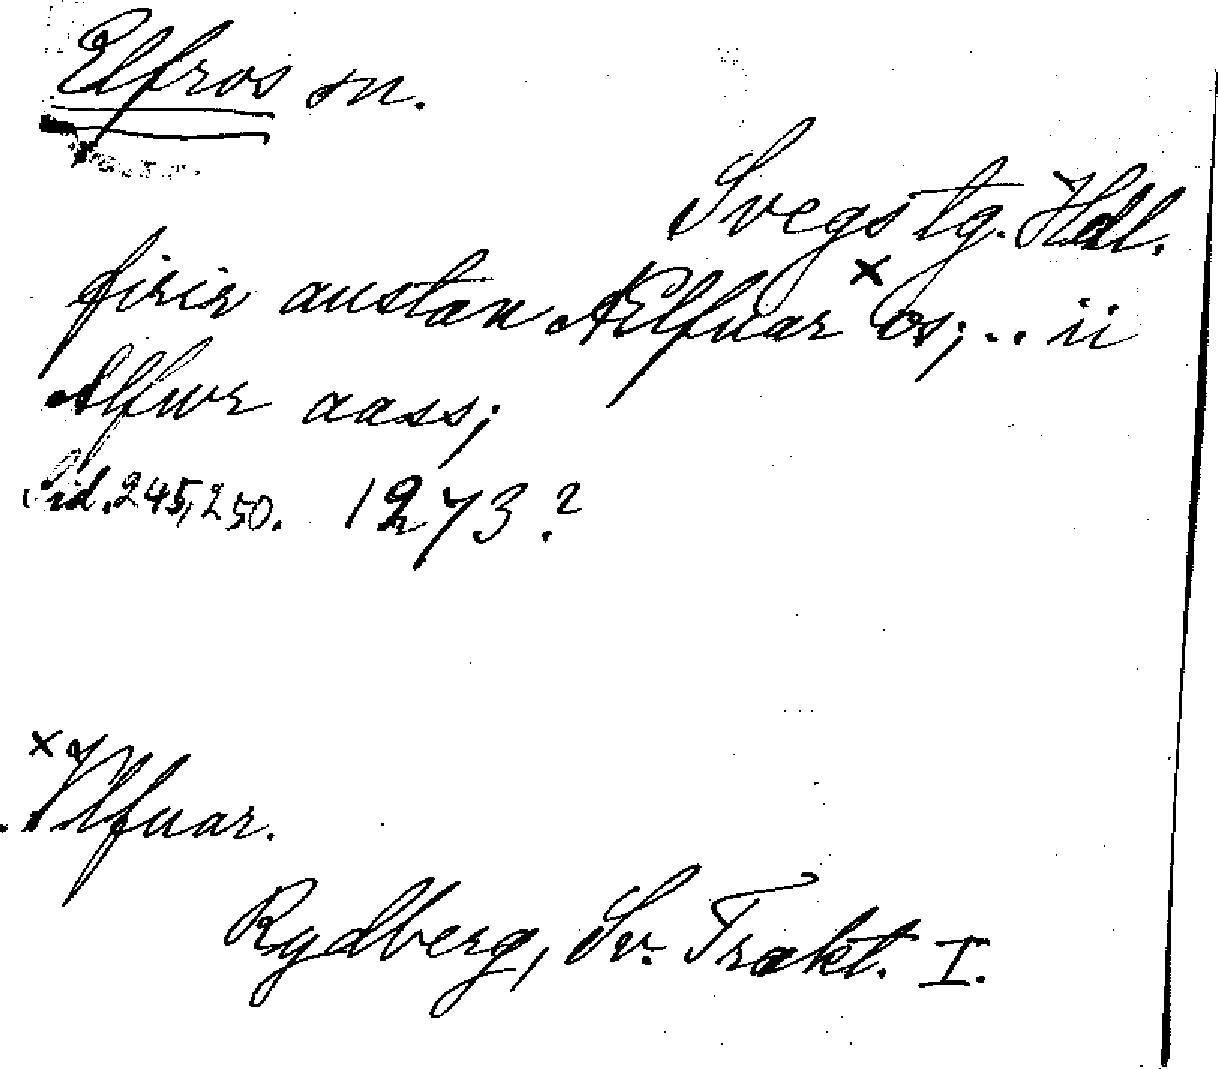 Elfros sn.
Svegs tg. Hdl.
firir austan Ælfuar × os; .. ii
Alfwr aass;
Sid. 245, 250. 1273?
× Alfuar.
Rydberg, Sv. Trakt. I.